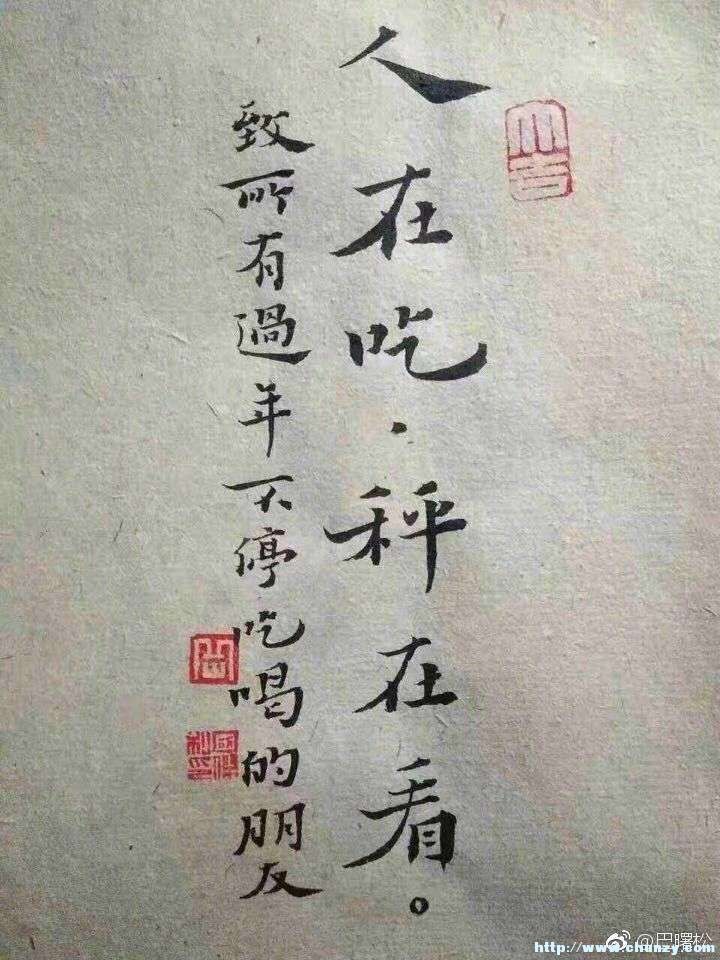 人在吃，秤在看。
致所有過年不停吃喝的朋友
@巴曙松
http://www.chunzy.com